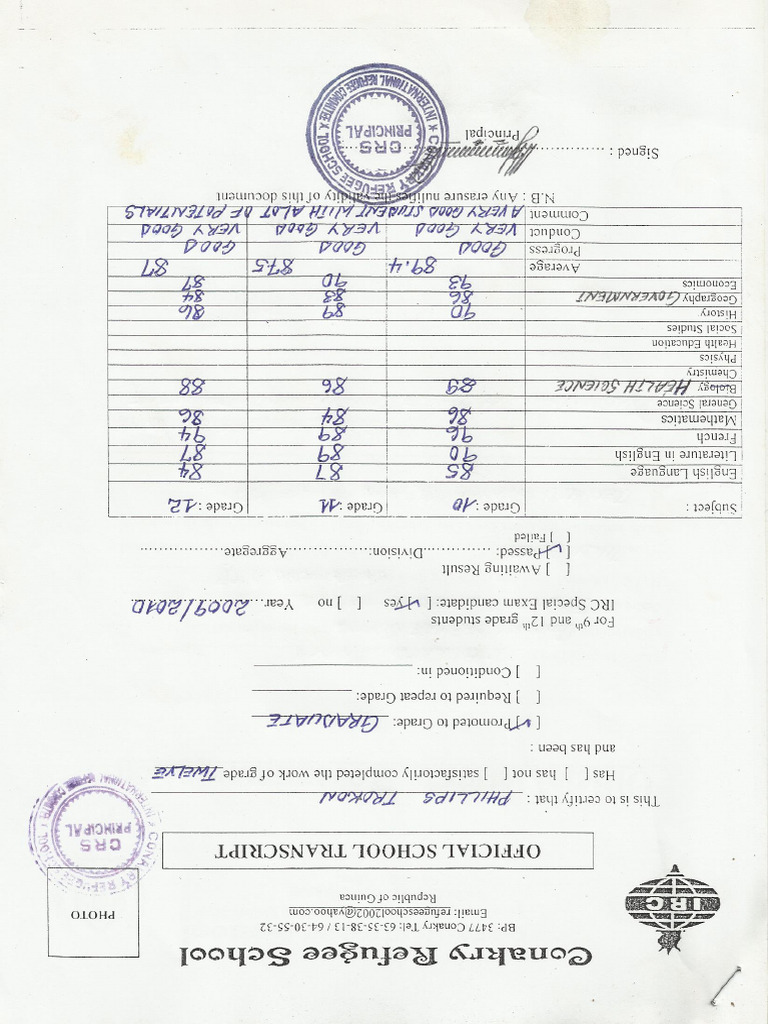 Conakry Refugee School
BP: 3477 Conakry Tel: 63-35-38-13 / 64-30-55-32
Email: refugeeschool2002@yahoo.com
Republic of Guinea
IRC
PHOTO
OFFICIAL SCHOOL TRANSCRIPT
CRS
PRINCIPAL
This is to certify that : PHILLIPS TROKON
Has [ ] has not [ ] satisfactorily completed the work of grade TWELVE
and has been :
[✓] Promoted to Grade: GRADUATE
[ ] Required to repeat Grade:
[ ] Conditioned in:
For 9th and 12th grade students
IRC Special Exam candidate: [✓] yes [ ] no Year. 2009/2010
[ ] Awaiting Result
[✓] Passed: ............Division:............Aggregate............
[ ] Failed
Subject : Grade : 10 Grade : 11 Grade : 12
English Language 85 87 84
Literature in English 90 89 87
French 96 89 94
Mathematics 86 84 86
General Science
Biology HEALTH SCIENCE 89 86 88
Chemistry
Physics
Health Education
Social Studies
History 90 89 86
Geography GOVERNMENT 86 83 84
Economics 93 90 87
Average 89.4 87.5 87
Progress GOOD GOOD GOOD
Conduct VERY GOOD VERY GOOD VERY GOOD
Comment A VERY GOOD STUDENT WITH ALOT OF POTENTIALS
N.B : Any erasure nullifies the validity of this document
Signed : ............
Principal
CONAKRY REFUGEE SCHOOL * INTERNATIONAL REFUGEE COMMITTE *
CRS
PRINCIPAL